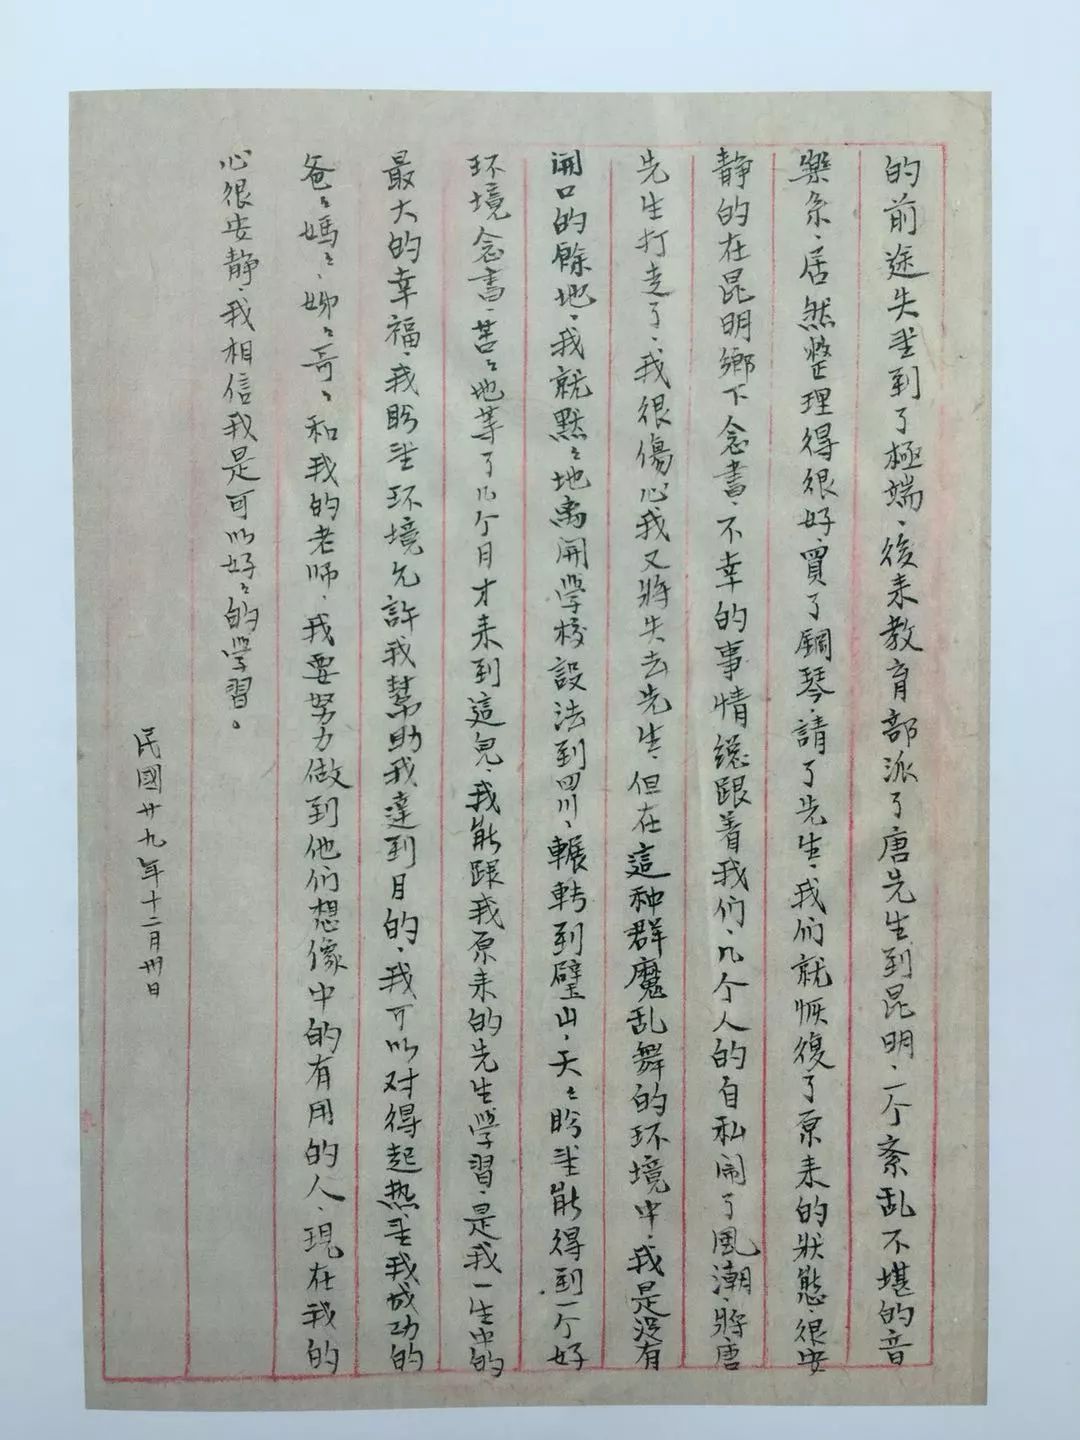 的前途失望到了極端、後来教育部派了唐先生到昆明、一个紊乱不堪的音
樂系、居然整理得很好、買了鋼琴、請了先生、我们就恢復了原来的狀態、很安
静的在昆明鄉下念書、不幸的事情總跟着我们、几个人的自私闹了風潮、將唐
先生打走了、我很傷心我又將失去先生、但在這种群魔乱舞的环境中、我是没有
開口的餘地、我就默〻地离開学校設法到四川、輾転到璧山、天〻盼望能得到一个好
环境念書、苦〻地等了几个月才来到這兒、我能跟我原来的先生学習、是我一生中的
最大的幸福、我盼望环境允許我幫助我達到目的、我可以对得起热望我成功的
爸〻媽〻、姊〻哥〻和我的老师、我要努力做到他们想像中的有用的人、現在我的
心很安静、我相信我是可以好〻的学習。
民國廿九年十二月卅日